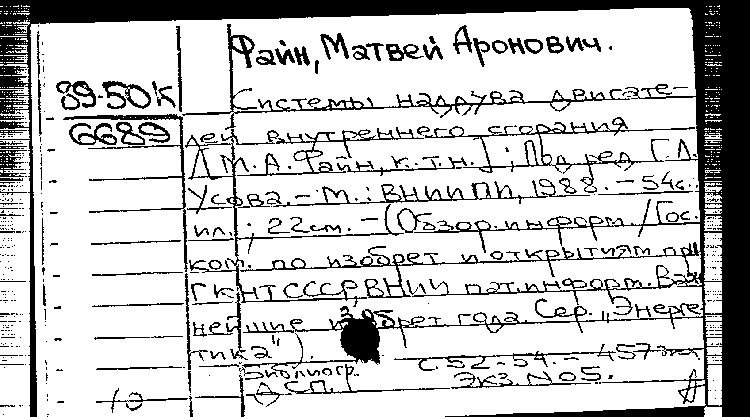 Файн, Матвей Аронович.
89-50К
6689
Системы наддува двигате-
лей внутреннего сгорания
[М.А. Файн, к.т.н.]; Под ред. Г.Л.
Усова. – М.: ВНИИПИ, 1988. – 54с.:
ил.; 22см. – (Обзор. информ. /Гос.
ком. по изобрет и открытиям при
ГКНТ СССР, ВНИИ пат. информ. Важ
нейшие изобрет года. Сер. „Энерге
тика").
Библиогр. с. 52-54. – 457 экз
ДСП. Экз. №05.